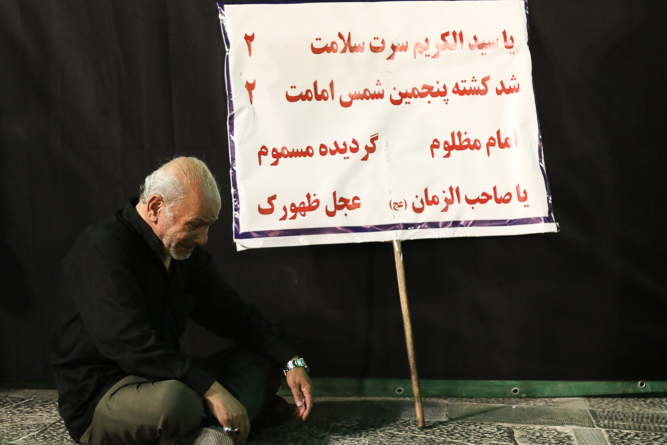 یا سید الکریم سرت سلامت ۲
شد کشته پنجمین شمس امامت ۲
امام مظلوم گردیده مسموم
یا صاحب الزمان (عج) عجل ظهورک